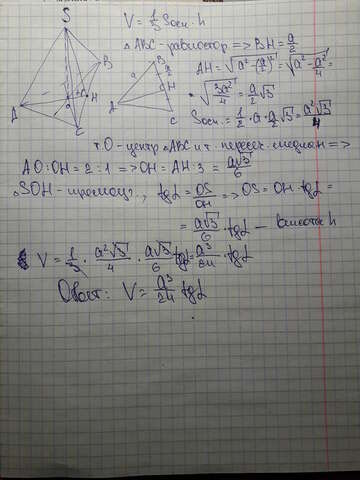 S
A
B
C
O
H
V = 1/3 Sосн · h
△ABC - равностор => BH = a/2
AH = √(a² - (a/2)²) = √(a² - a²/4) =
= √(3a²/4) = a/2 √3
Sосн. = 1/2 · a · a/2 √3 = a²√3/4
A
B
C
H
a
a/2
т.O - центр △ABC и т. пересеч. медиан =>
AO:OH = 2:1 => OH = AH:3 = a√3/6
△SOH - прямоуг., tgα = OS/OH => OS = OH · tgα =
= a√3/6 tgα - высота h
V = 1/3 · a²√3/4 · a√3/6 tgα = a³/24 · tgα
Ответ: V = a³/24 tgα